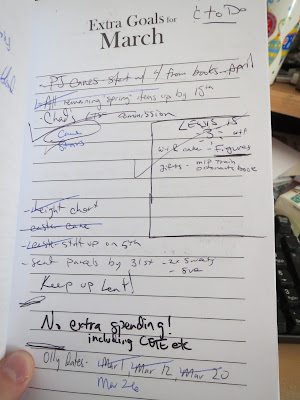 & to Do
Extra Goals for
March
- PJ Canes - start w/ 4 from books - April
- All remaining spring items up by 15th
- Chad's commission
Cane
Stars
LEWIS IS
3
w/ cake - Figures
gifts - train
book
- height chart
- easter cane
- Leaster stuff up on 5th
- Sent panels by 31st - 2x Sweaty
- Sue
Keep up Lent!
No extra spending!
including CETE etc
Olly Dates - Mar 1, Mar 12, Mar 20
Mar 26